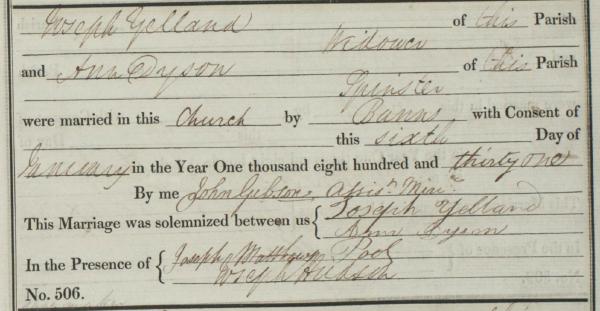 Joseph Yelland of this Parish
Widower
and Ann Dyson of this Parish
Spinster
were married in this Church by Banns with Consent of
this sixth Day of
January in the Year One thousand eight hundred and thirty one
By me John Gibson, Assist. Minr.
This Marriage was solemnized between us { Joseph Yelland
Ann Dyson
In the Presence of { Joseph Matthewman Pool
Joseph Hobson
No. 506.